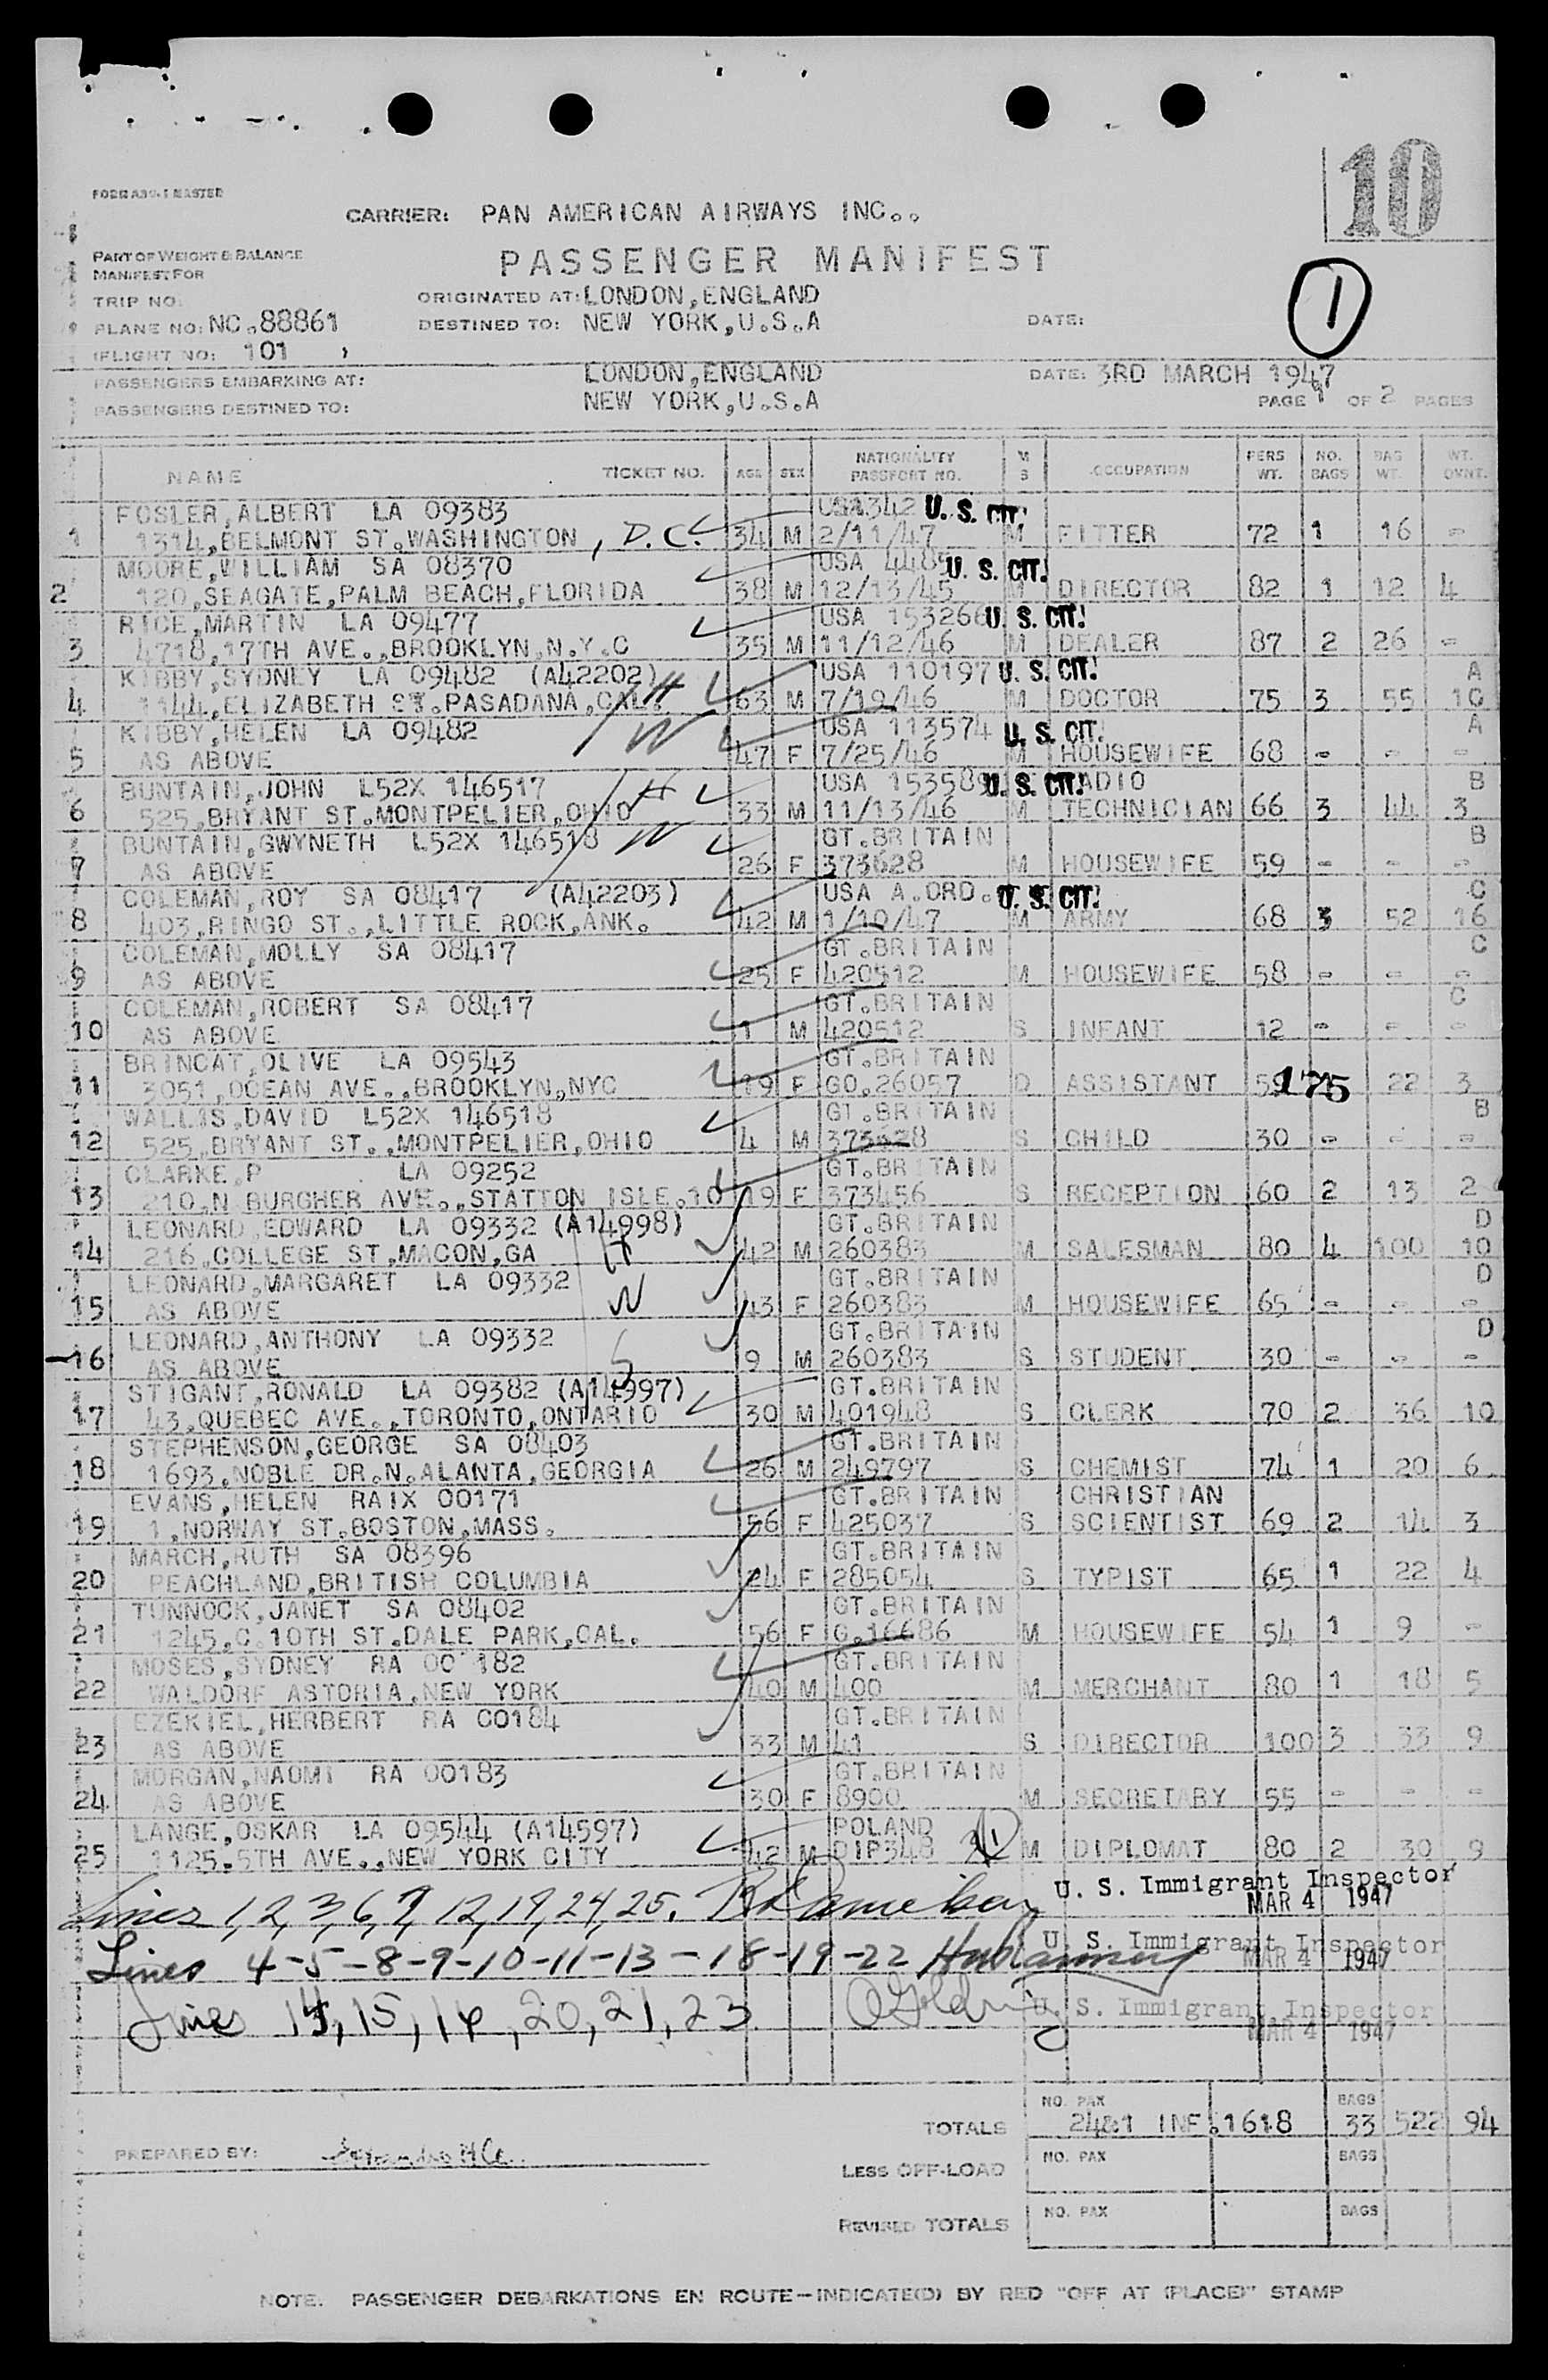 10
FORM
CARRIER: PAN AMERICAN AIRWAYS INC..
PART OF WEIGHT & BALANCE
MANIFEST FOR
PASSENGER MANIFEST
1
TRIP NO.
ORIGINATED AT: LONDON,ENGLAND
PLANE NO: NC.88861
DESTINED TO: NEW YORK,U.S.A
DATE:
FLIGHT NO: 101
PASSENGERS EMBARKING AT: LONDON,ENGLAND
DATE: 3RD MARCH 1947
PASSENGERS DESTINED TO: NEW YORK,U.S.A
PAGE 1 OF 2 PAGES
NAME TICKET NO. AGE SEX NATIONALITY PASSPORT NO. M S OCCUPATION PERS WT. NO. BAGS BAG WT. WT. OVNT.
FOSLER,ALBERT LA 09383 USA1342 U. S. CIT!
1 1314,BELMONT ST.WASHINGTON, D.C. 34 M 2/11/47 M FITTER 72 1 16 -
MOORE,WILLIAM SA 08370 USA 4485 U. S. CIT!
2 120,SEAGATE,PALM BEACH,FLORIDA 38 M 12/13/45 M DIRECTOR 82 1 12 4
RICE,MARTIN LA 09477 USA 153266 U. S. CIT!
3 4718,17TH AVE.,BROOKLYN,N.Y.C 35 M 11/12/46 M DEALER 87 2 26 -
KIBBY,SYDNEY LA 09482 (A42202) H USA 110197 U. S. CIT! A
4 1144,ELIZABETH ST.PASADANA,CAL. 63 M 7/19/46 M DOCTOR 75 3 55 10
KIBBY,HELEN LA 09482 W USA 113574 U. S. CIT! A
5 AS ABOVE 47 F 7/25/46 M HOUSEWIFE 68 - - -
BUNTAIN,JOHN L52X 146517 H USA 153589 U. S. CIT! RADIO B
6 525,BRYANT ST.MONTPELIER,OHIO 33 M 11/13/46 M TECHNICIAN 66 3 44 3
BUNTAIN,GWYNETH L52X 146518 W GT.BRITAIN B
7 AS ABOVE 26 F 373628 M HOUSEWIFE 59 - - -
COLEMAN,ROY SA 08417 (A42203) USA A.ORD. U. S. CIT! C
8 403,RINGO ST.,LITTLE ROCK,ANK. 42 M 1/10/47 M ARMY 68 3 52 16
COLEMAN,MOLLY SA 08417 GT.BRITAIN C
9 AS ABOVE 25 F 420512 M HOUSEWIFE 58 - - -
COLEMAN,ROBERT SA 08417 GT.BRITAIN C
10 AS ABOVE 1 M 420512 S INFANT 12 - - -
BRINCAT,OLIVE LA 09543 GT.BRITAIN
11 3051,OCEAN AVE.,BROOKLYN,NYC 19 F GO.26057 D ASSISTANT 175 22 3
WALLIS,DAVID L52X 146518 GT.BRITAIN B
12 525,BRYANT ST.,MONTPELIER,OHIO 4 M 373628 S CHILD 30 - - -
CLARKE,P LA 09252 GT.BRITAIN
13 210,N BURGHER AVE.,STATTON ISLE.10 19 F 373456 S RECEPTION 60 2 13 2
LEONARD,EDWARD LA 09332 (A14998) GT.BRITAIN D
14 216,COLLEGE ST,MACON,GA H 42 M 260383 M SALESMAN 80 4 100 10
LEONARD,MARGARET LA 09332 GT.BRITAIN D
15 AS ABOVE W 43 F 260383 M HOUSEWIFE 65 - - -
LEONARD,ANTHONY LA 09332 GT.BRITAIN D
16 AS ABOVE S 9 M 260383 S STUDENT 30 - - -
STIGANT,RONALD LA 09382 (A14997) GT.BRITAIN
17 43,QUEBEC AVE.,TORONTO,ONTARIO 30 M 401948 S CLERK 70 2 36 10
STEPHENSON,GEORGE SA 08403 GT.BRITAIN
18 1693,NOBLE DR.N.ALANTA,GEORGIA 26 M 249797 S CHEMIST 74 1 20 6
EVANS,HELEN RAIX 00171 GT.BRITAIN CHRISTIAN
19 1,NORWAY ST.BOSTON,MASS. 56 F 425037 S SCIENTIST 69 2 14 3
MARCH,RUTH SA 08396 GT.BRITAIN
20 PEACHLAND,BRITISH COLUMBIA 24 F 285054 S TYPIST 65 1 22 4
TUNNOCK,JANET SA 08402 GT.BRITAIN
21 1245,C.10TH ST.DALE PARK,CAL. 56 F G.16686 M HOUSEWIFE 54 1 9 -
MOSES,SYDNEY RA 00182 GT.BRITAIN
22 WALDORF ASTORIA,NEW YORK 40 M 400 M MERCHANT 80 1 18 5
EZEKIEL,HERBERT RA 00184 GT.BRITAIN
23 AS ABOVE 33 M 41 S DIRECTOR 100 3 33 9
MORGAN,NAOMI RA 00183 GT.BRITAIN
24 AS ABOVE 30 F 8900 M SECRETARY 55 - - -
LANGE,OSKAR LA 09544 (A14597) POLAND
25 1125.5TH AVE.,NEW YORK CITY 42 M DIP348 M DIPLOMAT 80 2 30 9
Lines 1,2,3,6,7,12,17,24,25. U. S. Immigrant Inspector
MAR 4 1947
Lines 4-5-8-9-10-11-13-18-19-22 U. S. Immigrant Inspector
MAR 4 1947
Lines 14,15,16,20,21,23 U. S. Immigrant Inspector
MAR 4 1947
TOTALS NO. PAX 24&1 INF. 1618 BAGS 33 522 94
PREPARED BY:
LESS OFF-LOAD NO. PAX BAGS
REVISED TOTALS NO. PAX BAGS
NOTE. PASSENGER DEBARKATIONS EN ROUTE—INDICATE(D) BY RED "OFF AT (PLACE)" STAMP